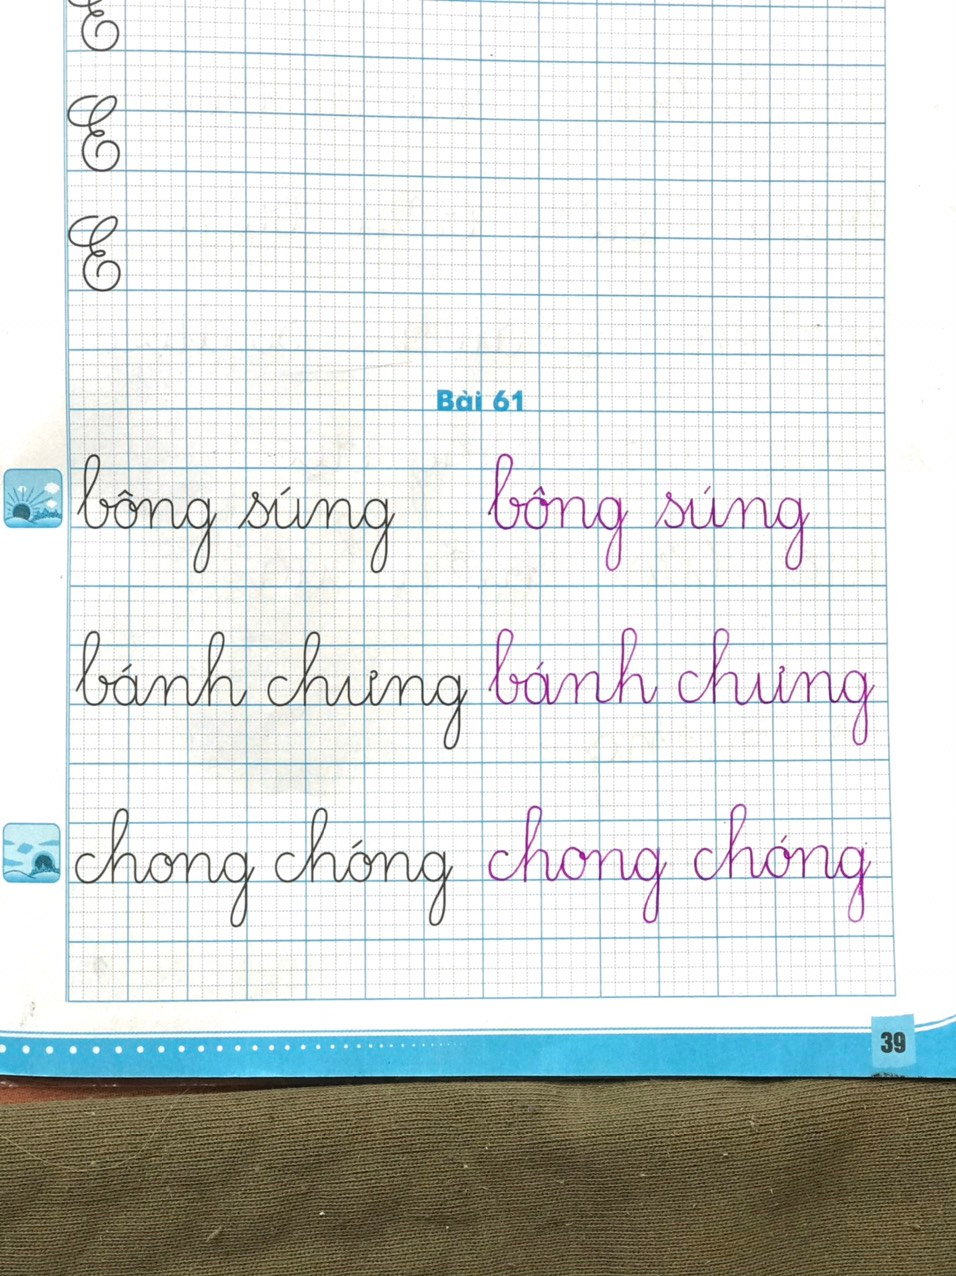 E
E
E
Bài 61
bông súng bông súng
bánh chưng bánh chưng
chong chóng chong chóng
39